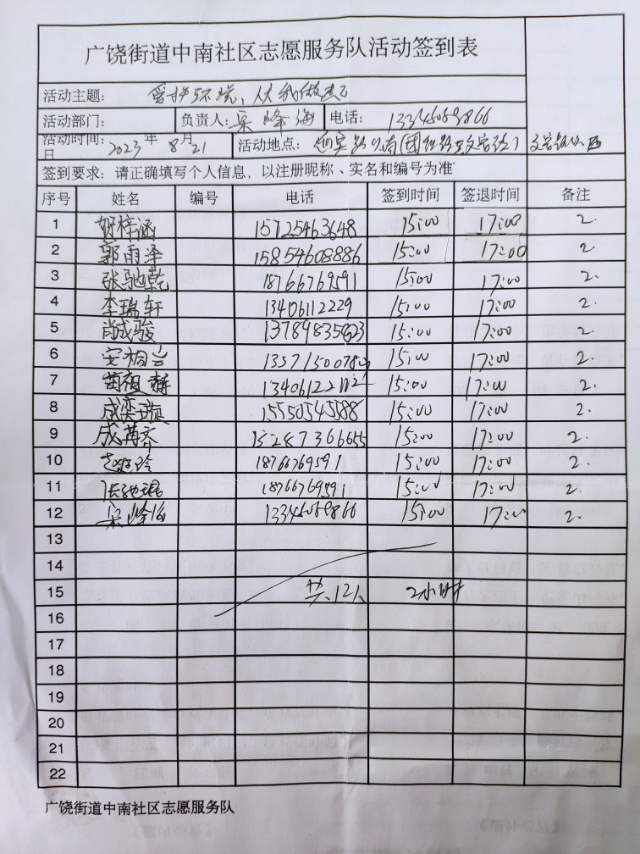 广饶街道中南社区志愿服务队活动签到表
活动主题: 爱护环境、从我做起
活动部门: 负责人: 梁峰海 电话:
活动时间: 2023年8月21日 活动地点:
签到要求: 请正确填写个人信息, 以注册昵称、实名和编号为准
序号 姓名 编号 电话 签到时间 签退时间 备注
1 15725463648 15:00 17:00 2.
2 郭雨泽 15854608886 15:00 17:00 2
3 张驰乾 18766769591 15:00 17:00 2.
4 李瑞轩 13406112229 15:00 17:00 2.
5 肖成骏 15:00 17:00 2.
6 15:00 17:00 2.
7 15:00 17:00 2.
8 15:00 17:00 2.
9 15:00 17:00 2.
10 18766769591 15:00 17:00 2.
11 18766769591 15:00 17:00 2.
12 梁峰海 15:00 17:00 2.
13
14
15 共12人 2小时
16
17
18
19
20
21
22
广饶街道中南社区志愿服务队